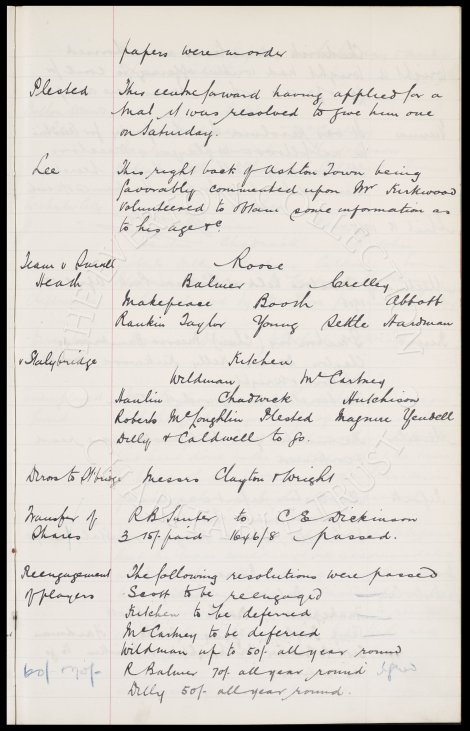 papers were in order
Plested This centreforward having applied for a
trial it was resolved to give him one
on Saturday.
Lee This right back of Ashton Town being
favorably commented upon Mr Kirkwood
volunteered to obtain some information as
to his age &c.
Team v Small Roose
Heath Balmer Crelley
Makepeace Booth Abbott
Rankin Taylor Young Settle Hardman
v Stalybridge Kitchen
Wildman McCartney
Hanlin Chadwick Hutchison
Roberts McLoughlin Plested Magnire Yeudell
Dilly & Caldwell to go.
Dirors to St'bridge Messrs Clayton & Wright
Transfer of R B Sunter to C E Dickinson
Shares 3 15/- paid 1646/8 passed.
Reengagement The following resolutions were passed
of players Scott to be reengaged
Kitchen to be deferred
McCartney to be deferred
Wildman up to 50/- all year round
60/- 70/- R Balmer 70/- all year round Agreed
Dilly 50/- all year round.